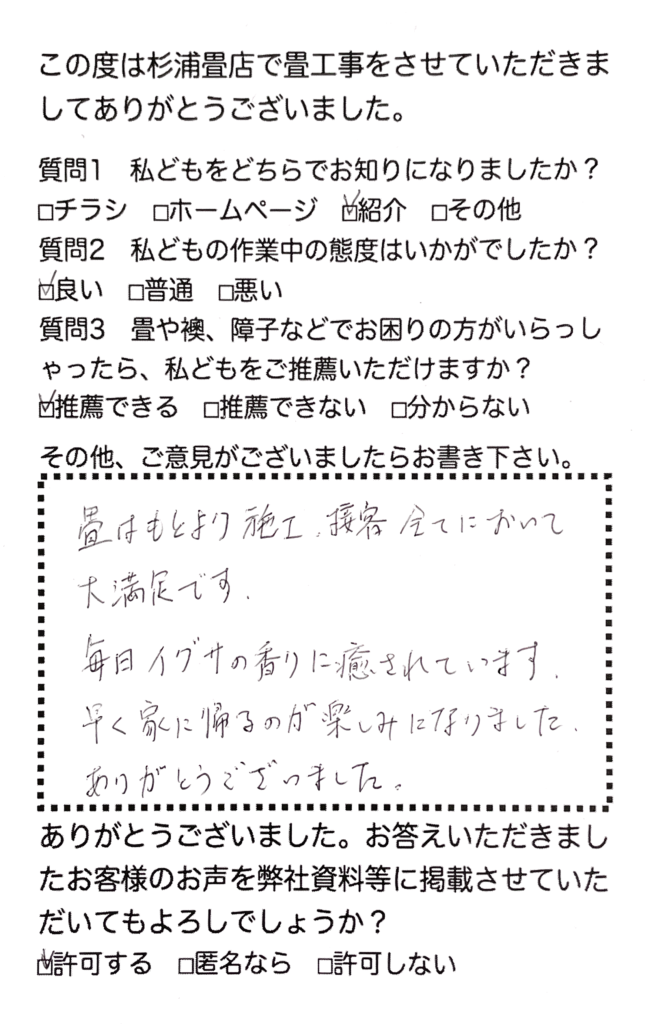 この度は杉浦畳店で畳工事をさせていただきま
してありがとうございました。
質問1　私どもをどちらでお知りになりましたか？
□チラシ　□ホームページ　☑紹介　□その他
質問2　私どもの作業中の態度はいかがでしたか？
☑良い　□普通　□悪い
質問3　畳や襖、障子などでお困りの方がいらっし
ゃったら、私どもをご推薦いただけますか？
☑推薦できる　□推薦できない　□分からない
その他、ご意見がございましたらお書き下さい。
畳はもとより施工、接客全てにおいて
大満足です.
毎日イグサの香りに癒されています.
早く家に帰るのが楽しみになりました.
ありがとうございました。
ありがとうございました。お答えいただきまし
たお客様のお声を弊社資料等に掲載させていた
だいてもよろしでしょうか？
☑許可する　□匿名なら　□許可しない